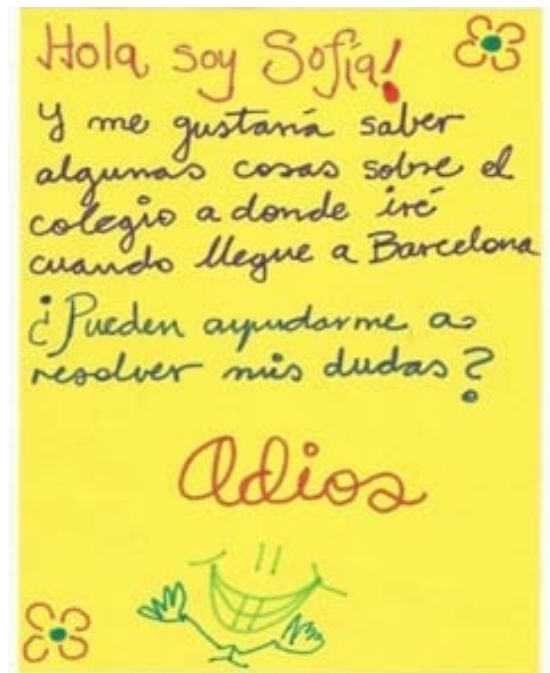 Hola soy Sofía!
Y me gustaría saber
algunas cosas sobre el
colegio a donde iré
cuando llegue a Barcelona
¿Pueden ayudarme a
resolver mis dudas?
Adios